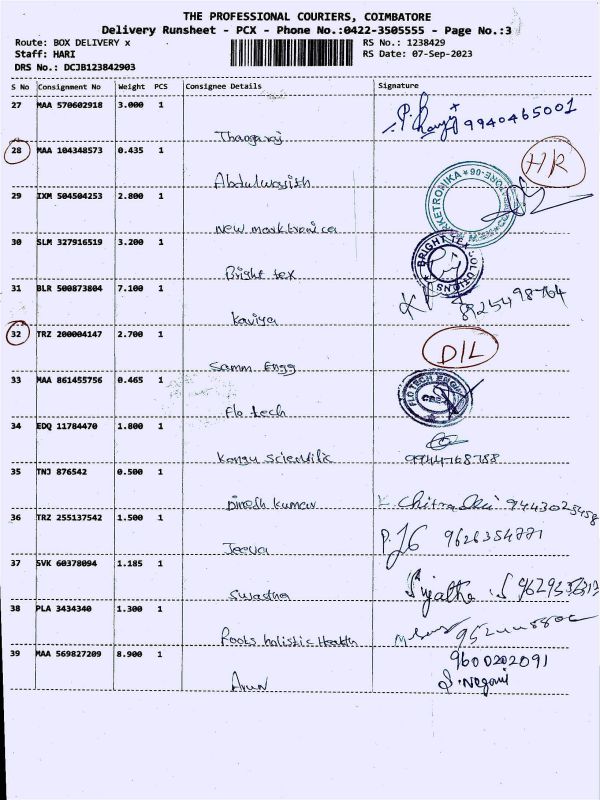 THE PROFESSIONAL COURIERS, COIMBATORE
Delivery Runsheet - PCX - Phone No.:0422-3505555 - Page No.:3
Route: BOX DELIVERY x RS No.: 1238429
Staff: HARI RS Date: 07-Sep-2023
DRS No.: DCJB123842903
S No Consignment No Weight PCS Consignee Details Signature
27 MAA 570602918 3.000 1
Thangaraj 9940465001
28 MAA 104348573 0.435 1 HR
Abdulwajish
29 IXM 504504253 2.800 1
New marktronica
30 SLM 327916519 3.200 1
Bright tex BRIGHT TEX SOLUTIONS
31 BLR 500873804 7.100 1
Kaviya 8925498764
32 TRZ 200004147 2.700 1 D/L
Samm Engg
33 MAA 861455756 0.465 1
Flo tech FLO TECH
34 EDQ 11784470 1.800 1
Kongu Scientific 9944768788
35 TNJ 876542 0.500 1
Dinesh kumar 9443025458
36 TRZ 255137542 1.500 1
Jeeva
37 SVK 60378094 1.185 1
Swadha Sujatha
38 PLA 3434340 1.300 1
Roots holistic Health
39 MAA 569827209 8.900 1 9600202091
Arun